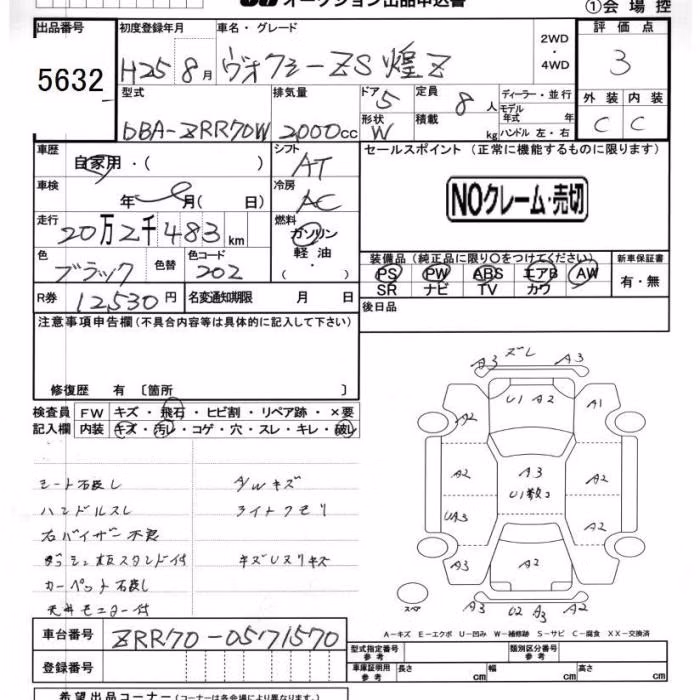 オークション出品申込書
①会場控
出品番号
5632
初度登録年月
H25 8月
車名・グレード
ヴォクシーZS 煌Z
2WD・4WD
評価点
3
型式
DBA-ZRR70W
排気量
2000cc
ドア 5
形状 W
定員 8人
積載 kg
ディーラー・並行
モデル年式 年
ハンドル 左・右
外装 内装
C C
車歴
自家用・( )
シフト
AT
セールスポイント(正常に機能するものに限ります)
NOクレーム・売切
車検
年 月( 日)
冷房
AC
走行
20万2千483km
燃料
ガソリン・軽油・( )
色
ブラック
色替
色コード
202
装備品(純正品に限り〇をつけてください)
PS PW ABS エアB AW
SR ナビ TV カワ
新車保証書
有・無
R券 12530円
名変通知期限 月 日
後日品
注意事項申告欄(不具合内容等は具体的に記入して下さい)
修復歴 有〔箇所 〕
検査員記入欄
FW キズ・飛石・ヒビ割・リペア跡・×要
内装 キズ・汚レ・コゲ・穴・スレ・キレ・破レ
A/Wキズ
ハンドルスレ
ライトクモリ
右バイザー不良
天井モニター付
A3 ズレ A3
U1 A2
A2 A1
A2 A3 A2
U1数コ
UA3 A2
A3 A2
スペア
A3 U2 A3 A2
A-キズ E-エクボ U-凹み W-補修跡 S-サビ C-腐食 XX-交換済
車台番号
ZRR70-0571570
登録番号
型式指定番号 参考
類別区分番号 参考
車庫証明用 参考
長さ cm 幅 cm 高さ cm
希望出品コーナー(コーナーは各会場により異なります。)